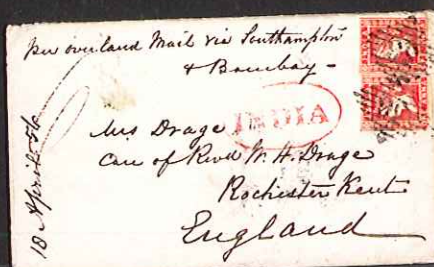 Per overland Mail via Southampton
& Bombay -
INDIA
Mrs Drage
Care of Revd W. H. Drage
Rochester Kent
England
18 April 56